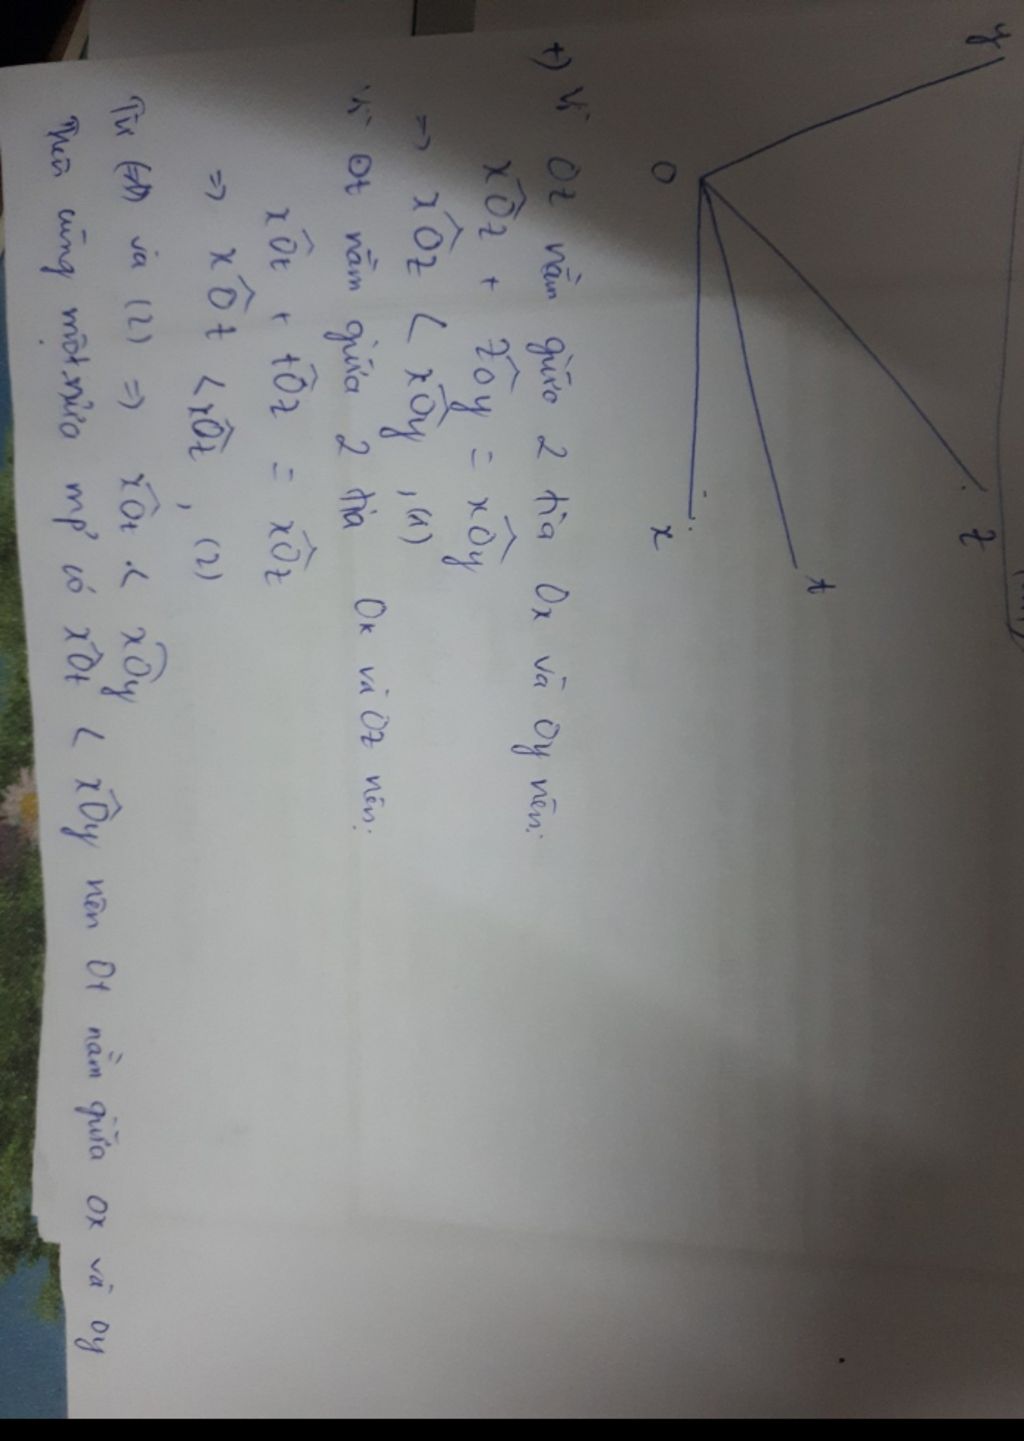 y
z
t
O
x
+) Vì Oz nằm giữa 2 tia Ox và Oy nên:
xÔz + zÔy = xÔy
=> xÔz < xÔy , (1)
Vì Ot nằm giữa 2 tia Ox và Oz nên:
xÔt + tÔz = xÔz
=> xÔt < xÔz , (2)
Từ (1) và (2) => xÔt < xÔy
Trên cùng một nửa mp có xÔt < xÔy nên Ot nằm giữa Ox và Oy